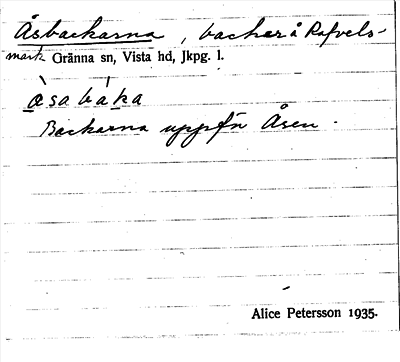 Åsbackarna, backer å Rafvels-
mark Gränna sn, Vista hd, Jkpg. l.
àsabáka
Backarna uppför Åsen.
Alice Petersson 1935.